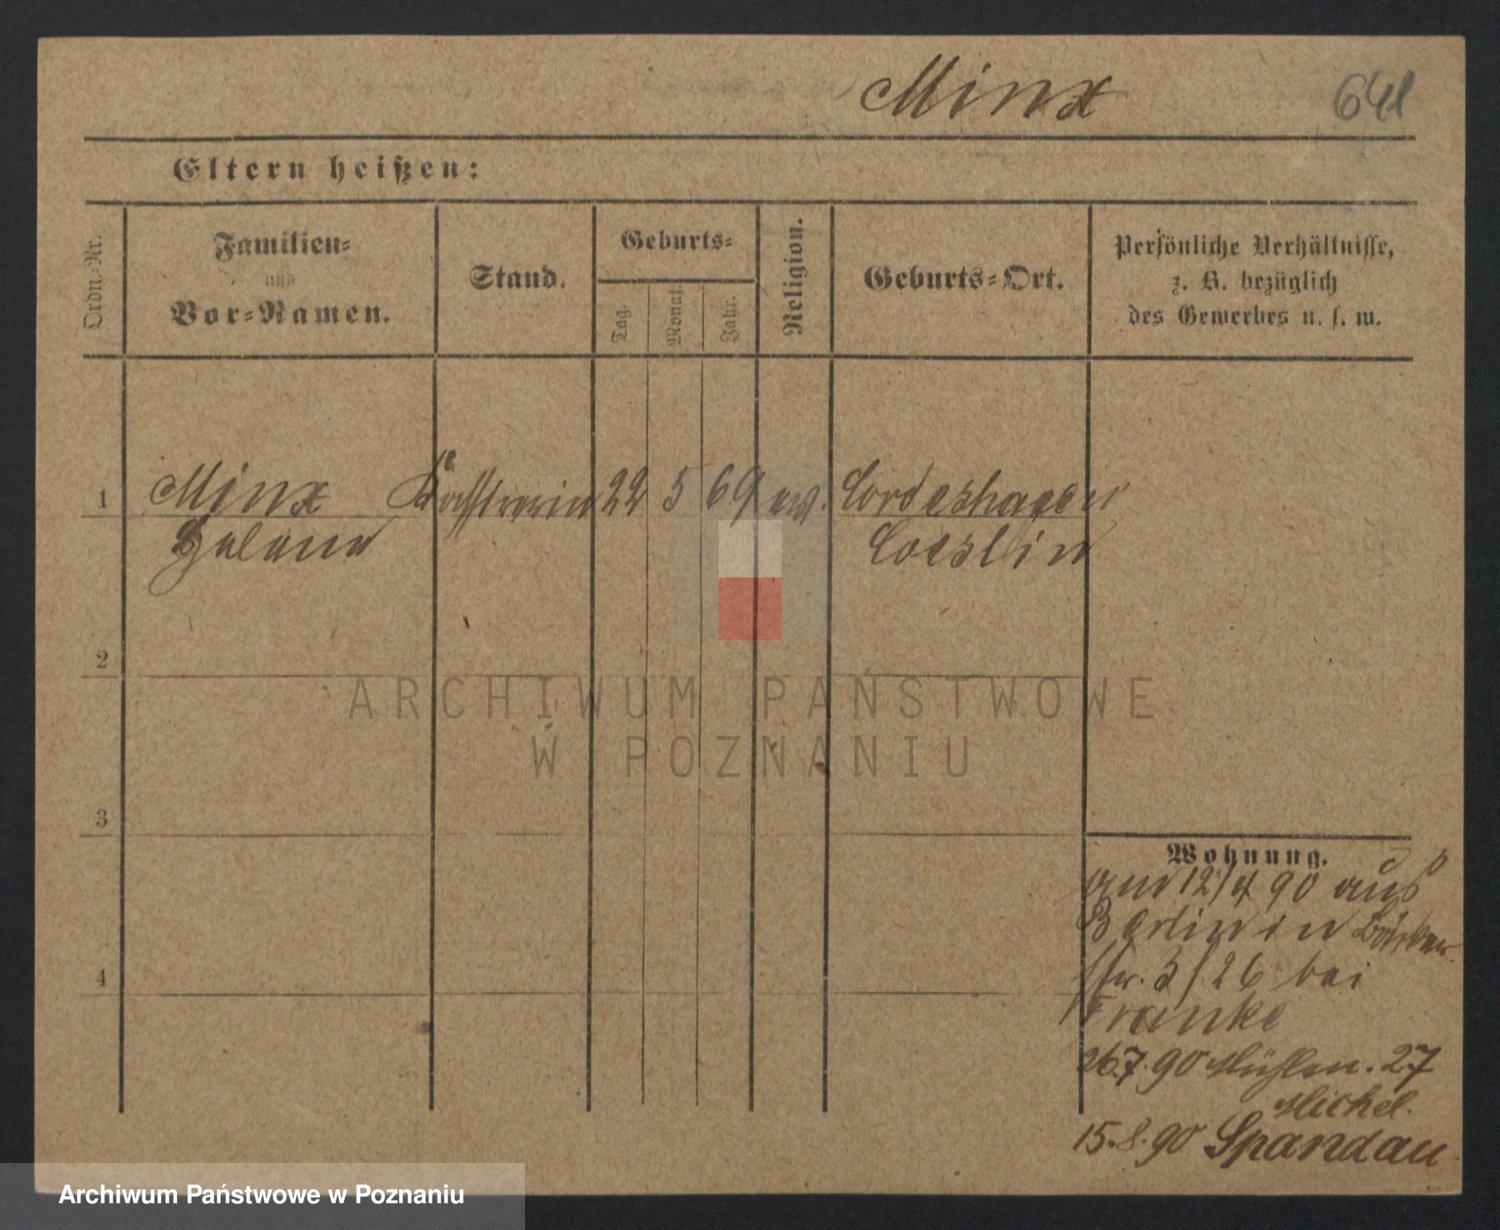 Minx 641
Eltern heißen:
Ordn.-Nr.
Familien-
und
Vor-Namen.
Stand.
Geburts-
Tag.
Monat.
Jahr.
Religion.
Geburts-Ort.
Persönliche Verhältnisse,
z. B. bezüglich
des Gewerbes u. s. w.
1 Minx 22 5 69 ev. Cordeshagen
Helene Coeslin
2
3
4
ARCHIWUM PAŃSTWOWE
W POZNANIU
Wohnung.
am 12/4 90 aus
Berlin in
str. 3/26 bei
Franke
26.7.90 Mühlen. 27
Michel.
15.8.90 Spandau
Archiwum Państwowe w Poznaniu